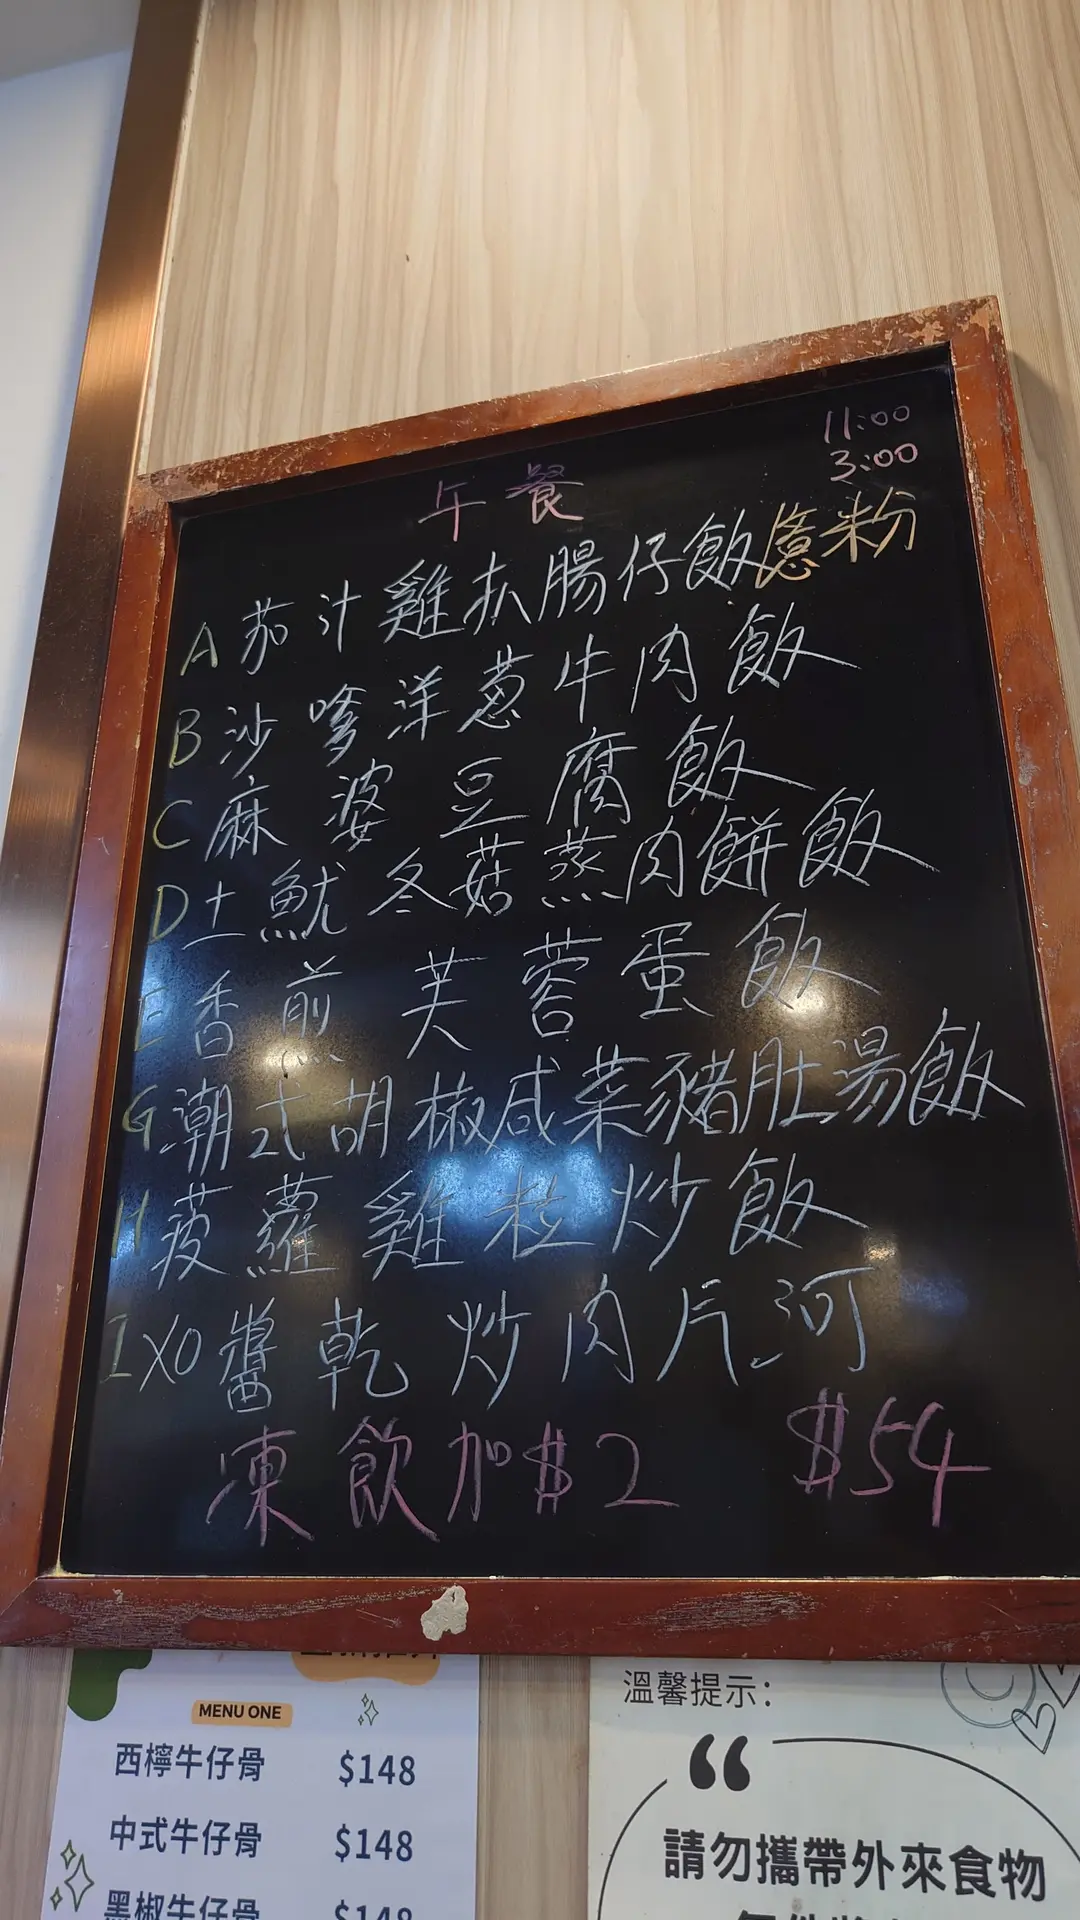 11:00
3:00
午餐
A 茄汁雞扒腸仔飯 意粉
B 沙嗲洋蔥牛肉飯
C 麻婆豆腐飯
D 土魷冬菇蒸肉餅飯
E 香煎芙蓉蛋飯
G 潮式胡椒咸菜豬肚湯飯
H 菠蘿雞粒炒飯
I XO醬乾炒肉片河
凍飲加$2 $54
MENU ONE
西檸牛仔骨 $148
中式牛仔骨 $148
黑椒牛仔骨 $148
溫馨提示：
“
請勿攜帶外來食物